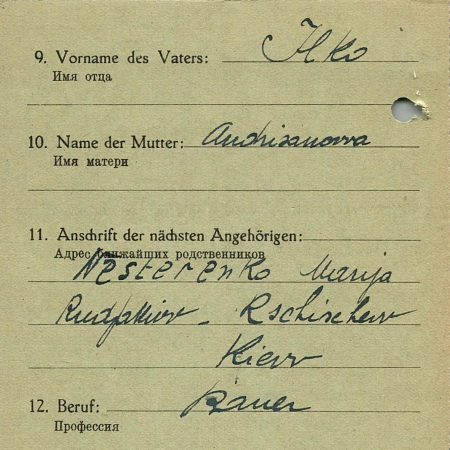 9. Vorname des Vaters: Ilko
Имя отца
10. Name der Mutter: Andrianowa
Имя матери
11. Anschrift der nächsten Angehörigen:
Адрес ближайших родственников
Nesterenko Marija
Rschischew
Kiew
12. Beruf: Bauer
Профессия